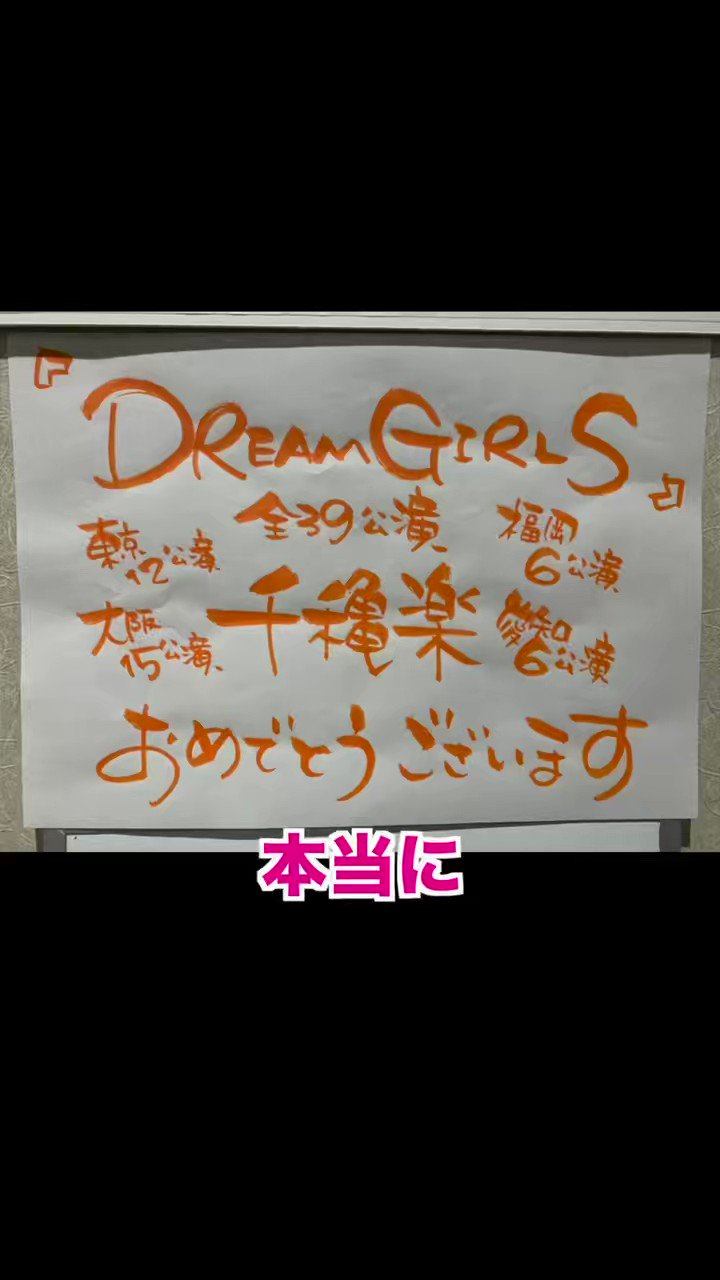 『DREAMGIRLS』
全39公演
東京
12公演
福岡
6公演
千穐楽
大阪
15公演
愛知
6公演
おめでとうございます
本当に